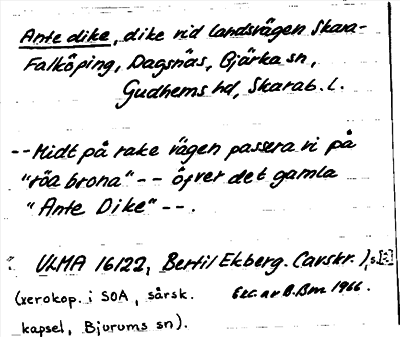 Ante dike, dike vid landsvägen Skara-
Falköping, Dagsnäs, Bjärka sn,
Gudhems hd, Skarab. l.
-- Midt på rake vägen passera vi på
"röa brona" -- öfver det gamla
"Ante Dike" --.
ULMA 16122, Bertil Ekberg. (avskr.), s.
(xerokop. i SOA, särsk. Exc. av B. Bm 1966.
kapsel, Bjurums sn).